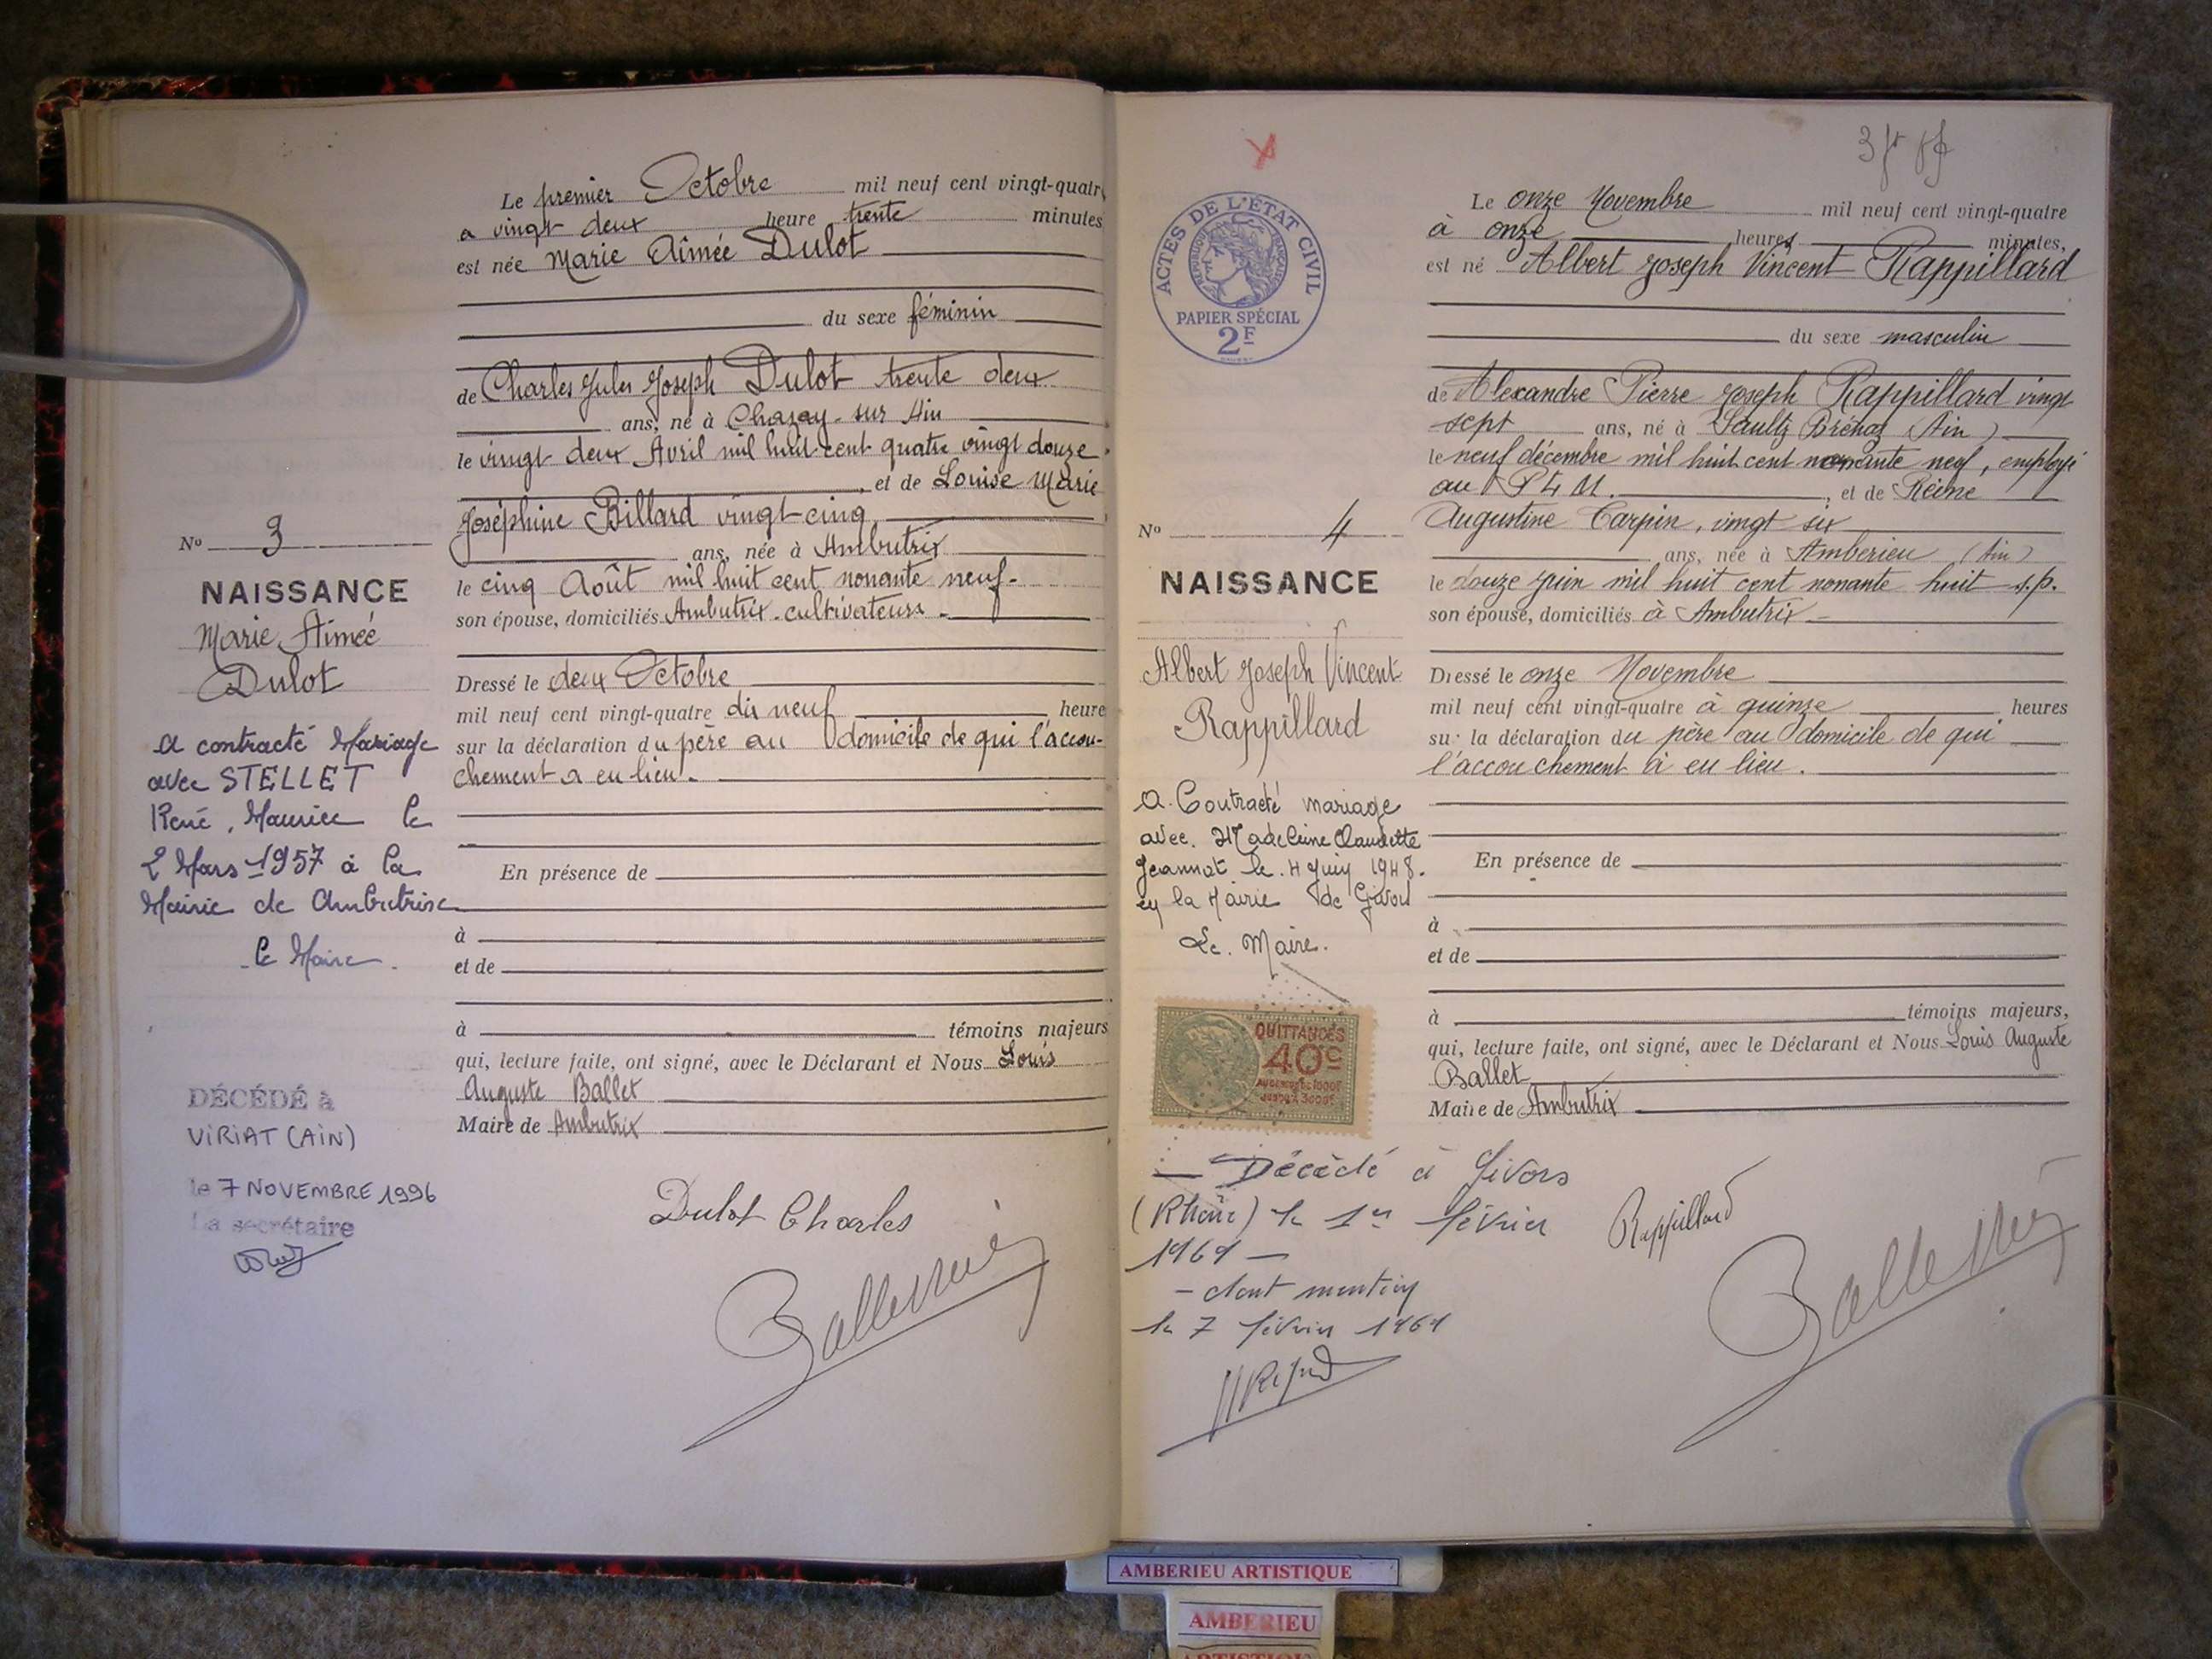 Le premier Octobre mil neuf cent vingt-quatre
a vingt deux heure trente minutes
est née Marie Aimée Dulot
du sexe féminin
de Charles Jules Joseph Dulot trente deux
ans, né à Chazay-sur Ain
le vingt deux Avril mil huit cent quatre vingt douze
et de Louise Marie
Joséphine Billard vingt-cinq
ans, née à Ambutrix
le cinq Août mil huit cent nonante neuf-
son épouse, domiciliés Ambutrix-cultivateurs-
Dressé le deux Octobre
mil neuf cent vingt-quatre dix neuf heure
sur la déclaration du père au domicile de qui l'accou-
chement a eu lieu.
En présence de
à
et de
à témoins majeurs
qui, lecture faite, ont signé, avec le Déclarant et Nous Louis
Auguste Ballet
Maire de Ambutrix
Dulot Charles
No 3
NAISSANCE
Marie Aimée
Dulot
a contracté Mariage
avec STELLET
René, Maurice le
2 Mars 1957 à la
Mairie de Ambutrix
le Maire.
DÉCÉDÉ à
VIRIAT (AIN)
le 7 NOVEMBRE 1996
La secrétaire
3 fr
ACTES DE L'ÉTAT CIVIL
RÉPUBLIQUE FRANÇAISE
PAPIER SPÉCIAL
2F
Le onze Novembre mil neuf cent vingt-quatre
à onze heures minutes,
est né Albert Joseph Vincent Rappillard
du sexe masculin
de Alexandre Pierre Joseph Rappillard vingt
sept ans, né à Saultz Brénaz (Ain)
le neuf décembre mil huit cent nonante neuf, employé
au P L M. , et de Reine
Augustine Carpin, vingt six
ans, née à Amberieu (Ain)
le douze juin mil huit cent nonante huit s.p.
son épouse, domiciliés à Ambutrix-
Dressé le onze Novembre
mil neuf cent vingt-quatre à quinze heures
sur la déclaration du père au domicile de qui
l'accouchement à eu lieu.
En présence de
à
et de
à témoins majeurs,
qui, lecture faite, ont signé, avec le Déclarant et Nous Louis Auguste
Ballet
Maire de Ambutrix
Rappillard
No 4
NAISSANCE
Albert Joseph Vincent
Rappillard
a Contracté mariage
avec Madeleine Claudette
Jeannot le 4 Juin 1948.
en la Mairie de Givors
Le Maire.
QUITTANCES
40c
AU DESSUS DE 1000F
JUSQU'À 3000F
Décédé à Givors
(Rhône) le 1er février
1969
- dont mention
le 7 février 1969
AMBERIEU ARTISTIQUE
AMBERIEU
ARTISTIQUE